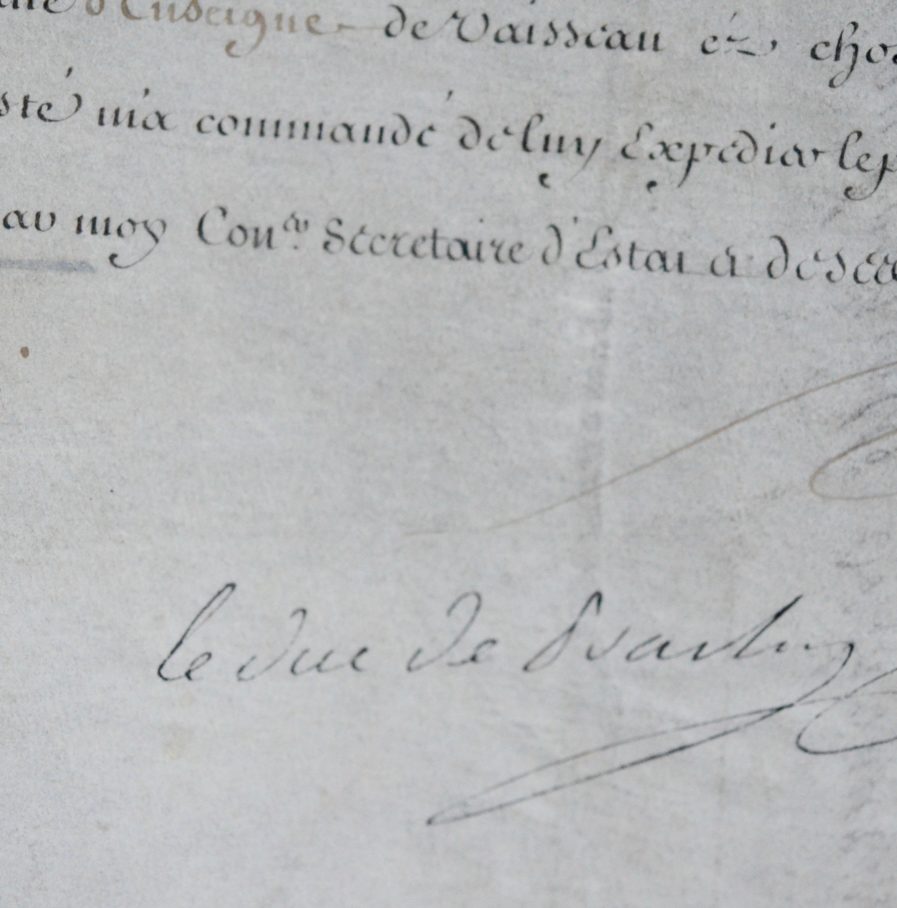 d'Enseigne de Vaisseau et cho
sté m'a commandé de luy Expedier le p
par moy Con.er Secretaire d'Estat et de ses
le duc de Praslin